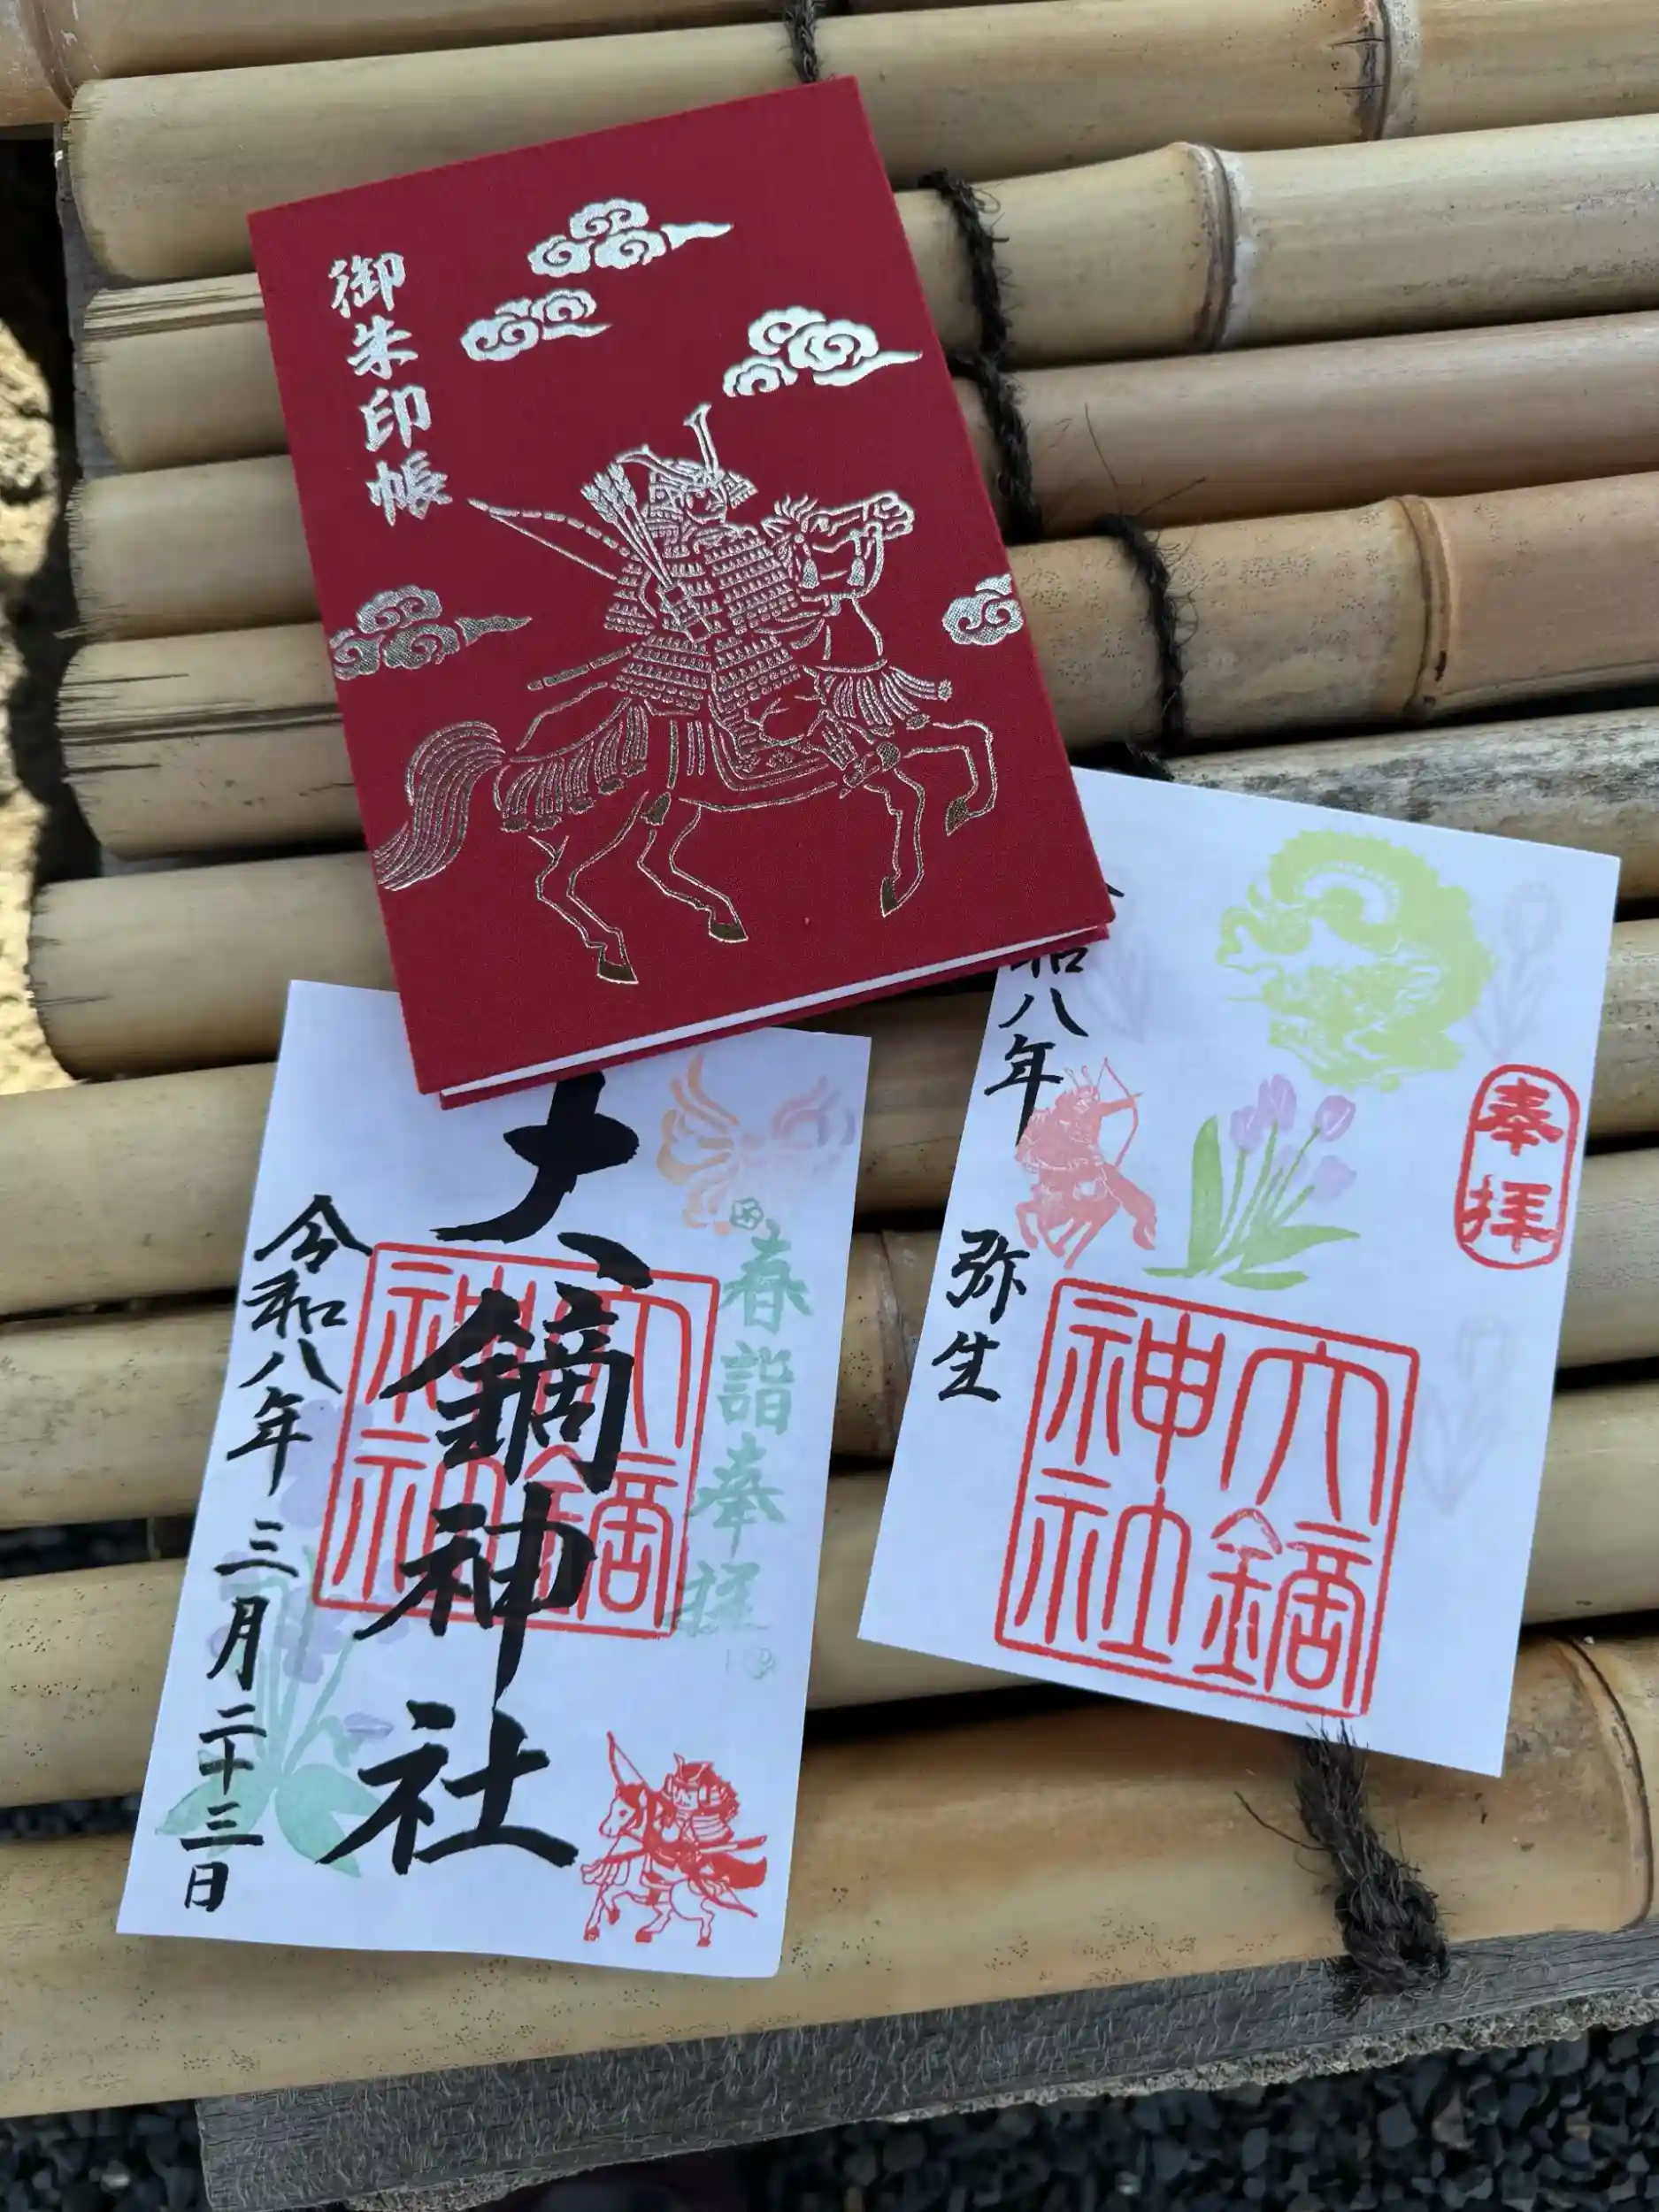 御朱印帳
奉拝
大鏑
神社
和八年
弥生
春詣奉拝
大鏑神社
大鏑
神社
令和八年 三月二十三日